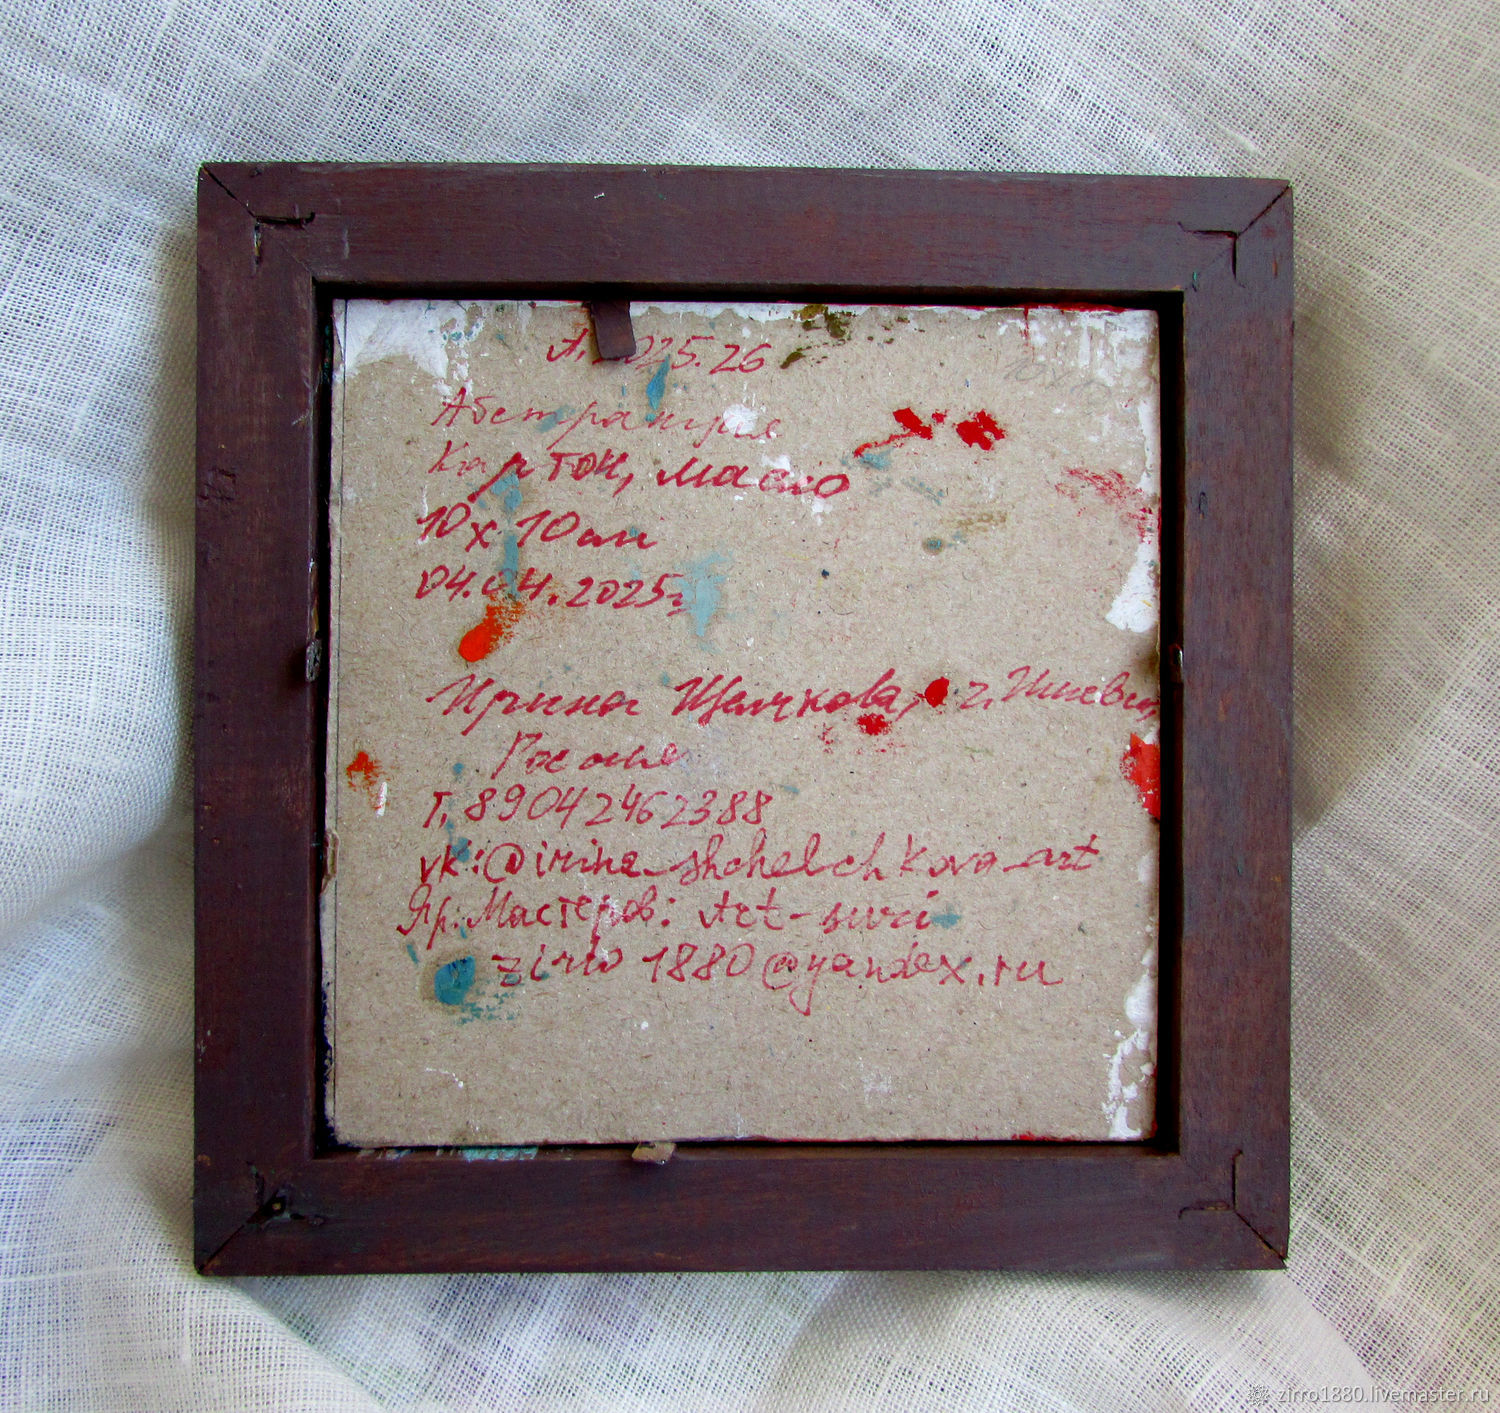 А. 2025.26
Абстракция
Картон, масло
10х10см
04.04.2025г
Ирина Щелчкова, г. Ижевск,
Россия
т. 89042462388
vk:@irina_shchelchkova_art
Яр. Мастеров: Art-
zirro1880@yandex.ru
zirro1880.livemaster.ru